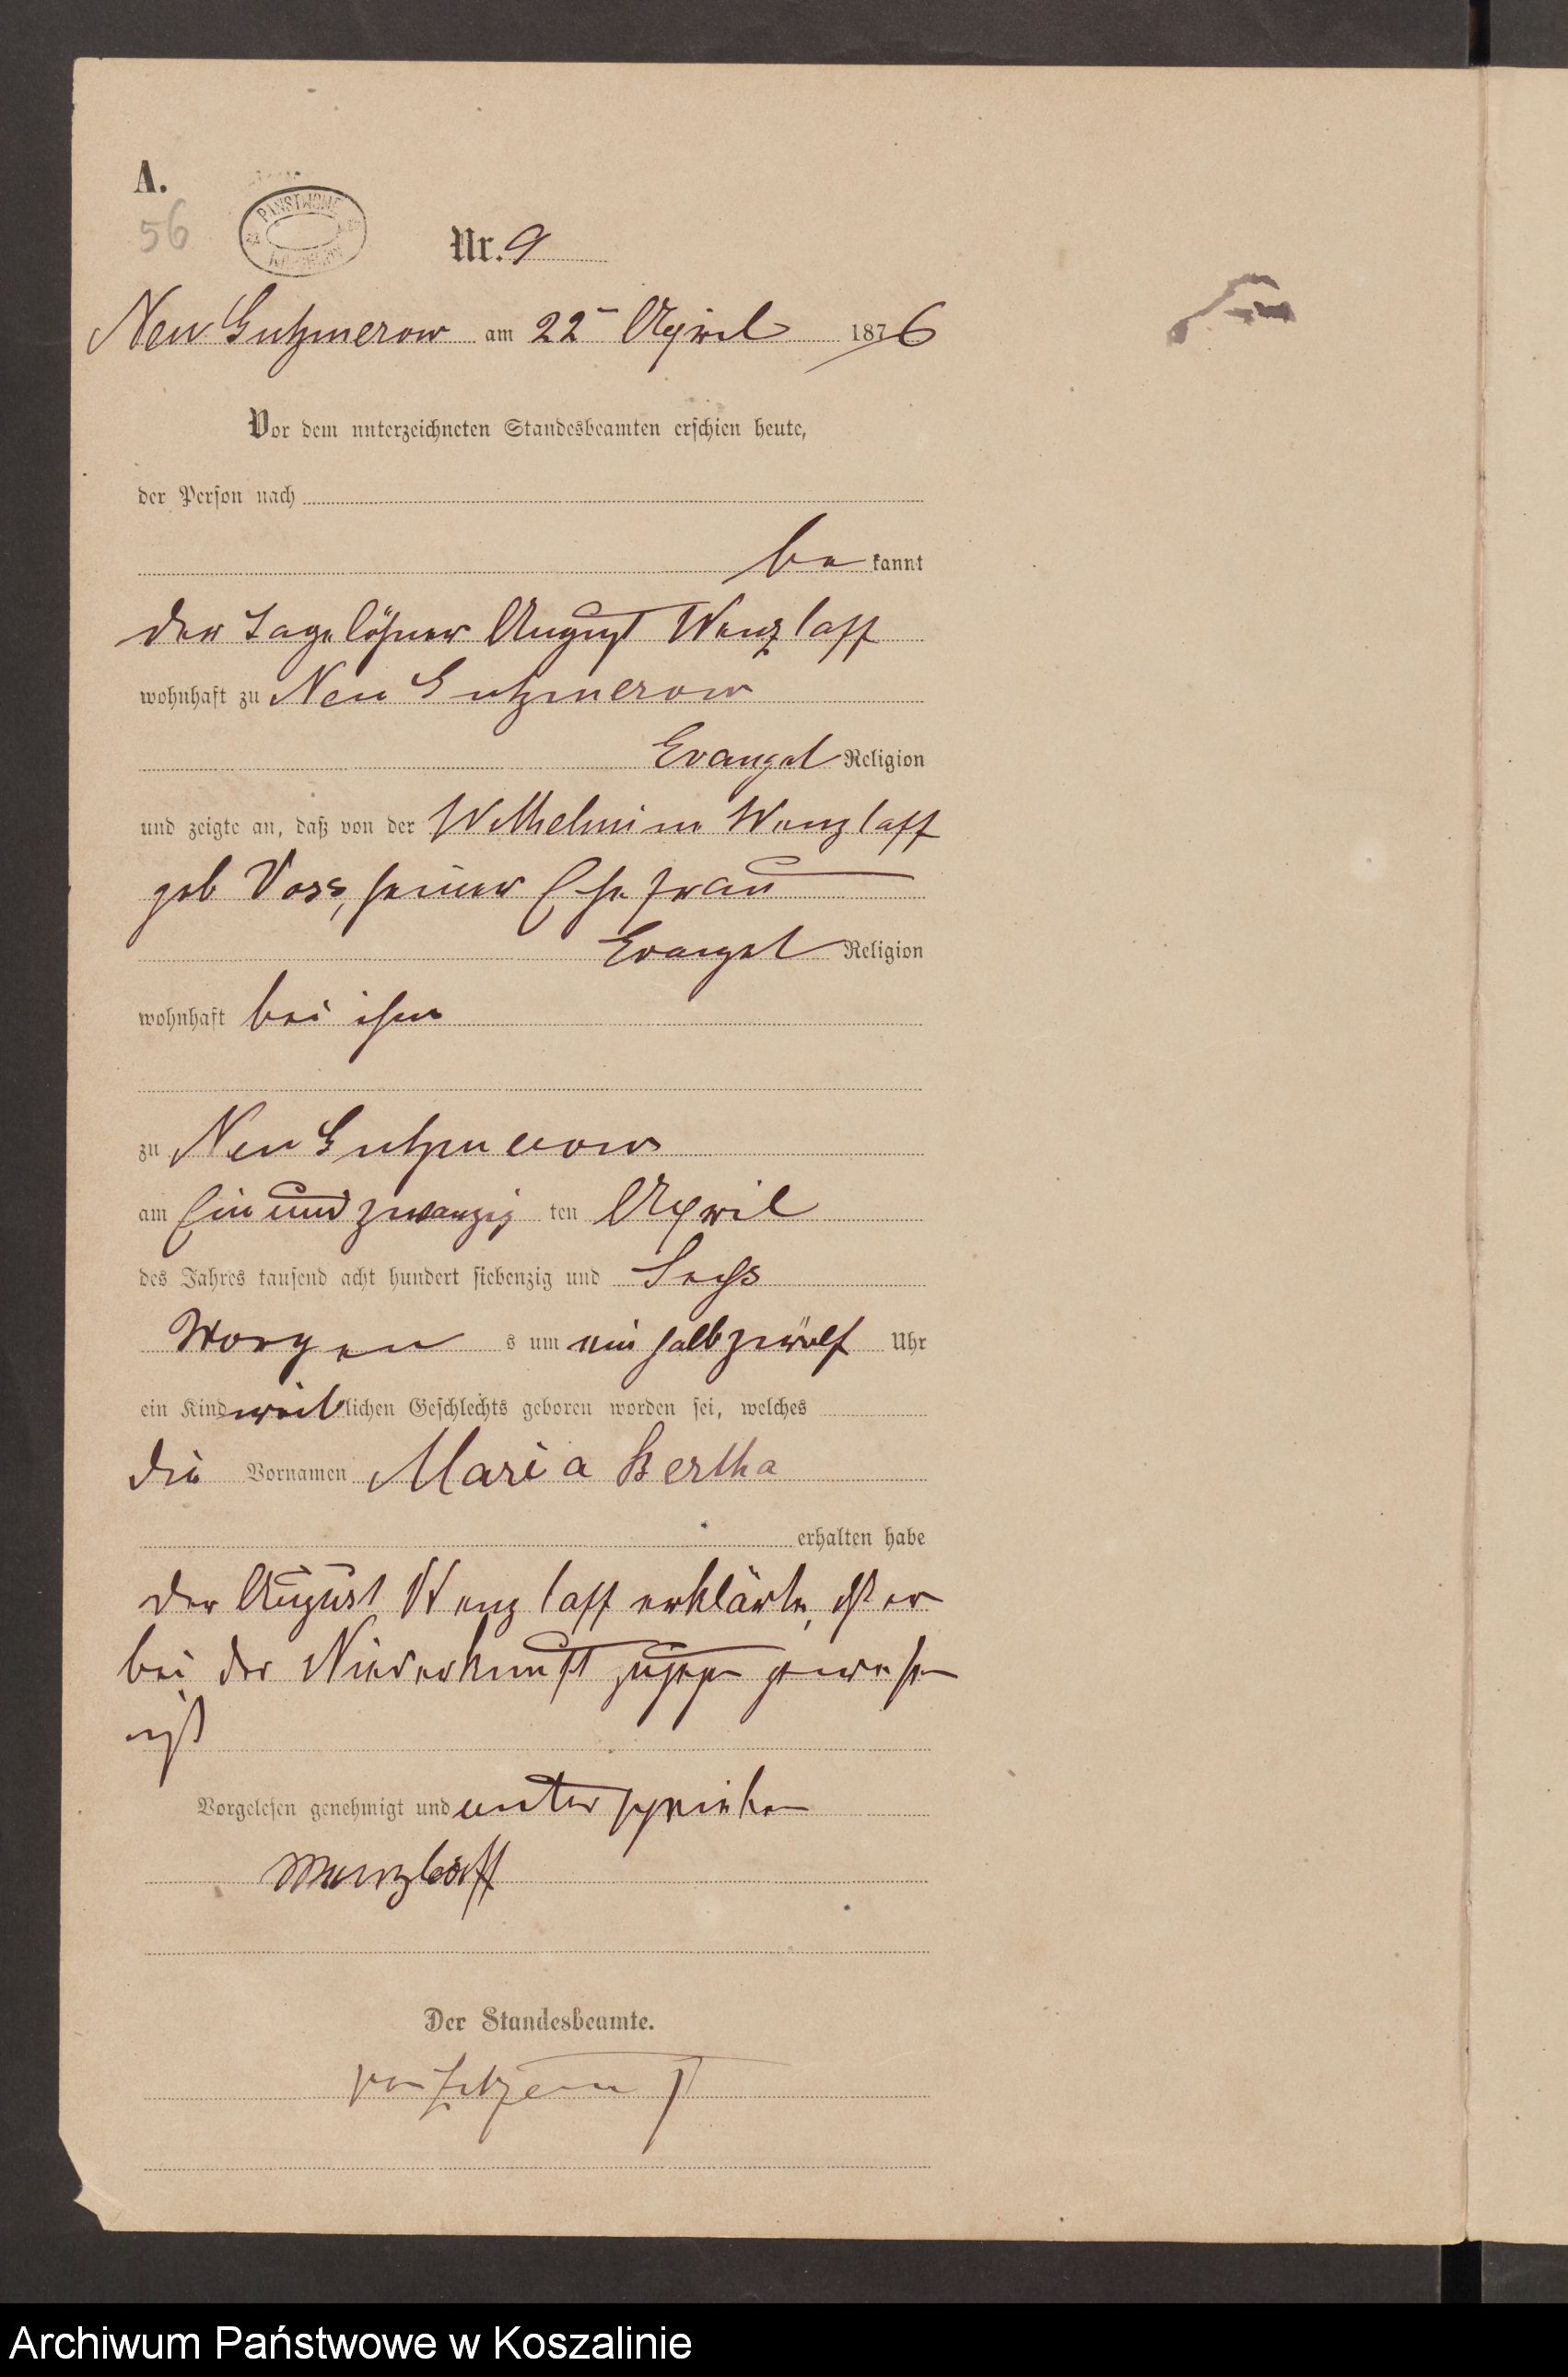 A.
56
PAŃSTWOWE
Nr. 9
Neu Gutzmerow am 22 April 1876
Vor dem unterzeichneten Standesbeamten erschien heute,
der Person nach
be kannt
der Tagelöhner August Wenzlaff
wohnhaft zu Neu Gutzmerow
Evangel Religion
und zeigte an, daß von der Wilhelmine Wenzlaff
geb Voss, seiner Ehefrau
Evangel Religion
wohnhaft bei ihm
zu Neu Gutzmerow
am Ein und zwanzig ten April
des Jahres tausend acht hundert siebenzig und Sechs
Morgen s um ein halb zwölf Uhr
ein Kind weiblichen Geschlechts geboren worden sei, welches
die Vornamen Maria Bertha
erhalten habe
der August Wenzlaff erklärte, er
bei der Niederkunft zugegen gewesen
ist
Vorgelesen genehmigt und unterschrieben
Wenzlaff
Der Standesbeamte.
von
Archiwum Państwowe w Koszalinie